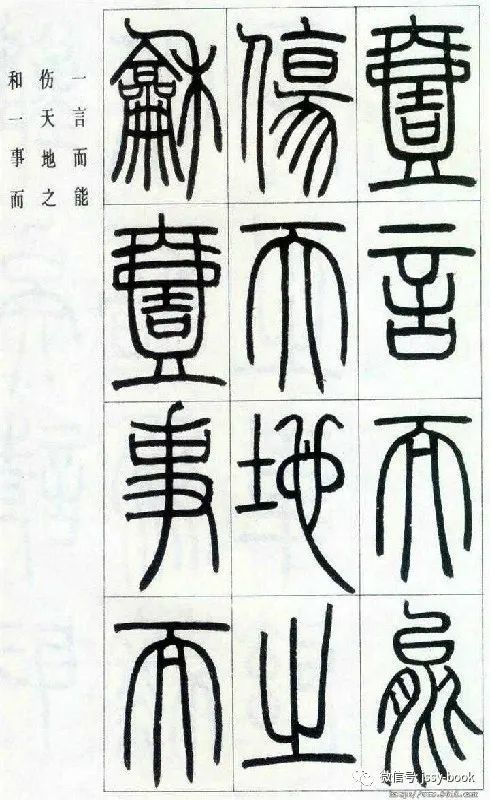 壹言而能
傷天地之
龢壹事而
一言而能
伤天地之
和一事而
微信号: jssy-book